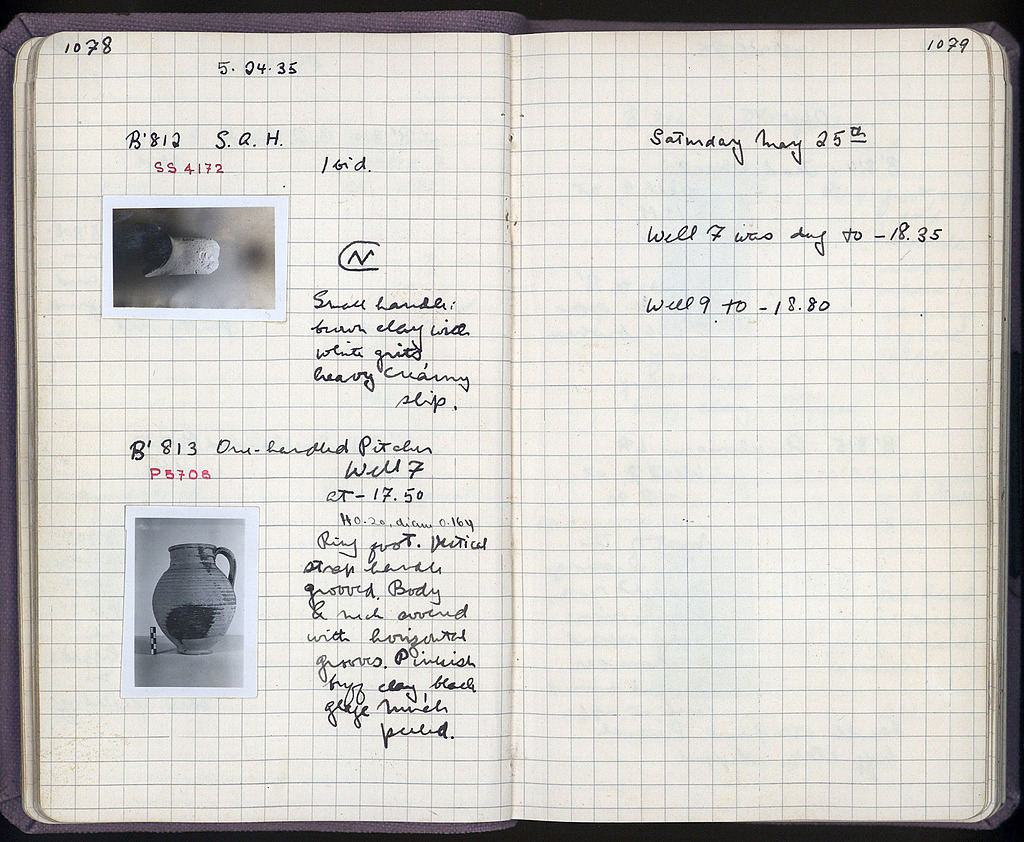 1078
5.24.35
B'812 S.A.H.
SS 4172
Ibid.
Small handle:
brown clay with
white grits,
heavy creamy
slip.
B' 813 One-handled Pitcher
P5705
Well 7
at -17.50
H 0.20, diam 0.164
Ring foot. Vertical
strap handle
grooved. Body
& neck covered
with horizontal
grooves. Pinkish
buff clay, black
glaze much
peeled.
1079
Saturday May 25th
Well 7 was dug to -18.35
Well 9 to -18.80